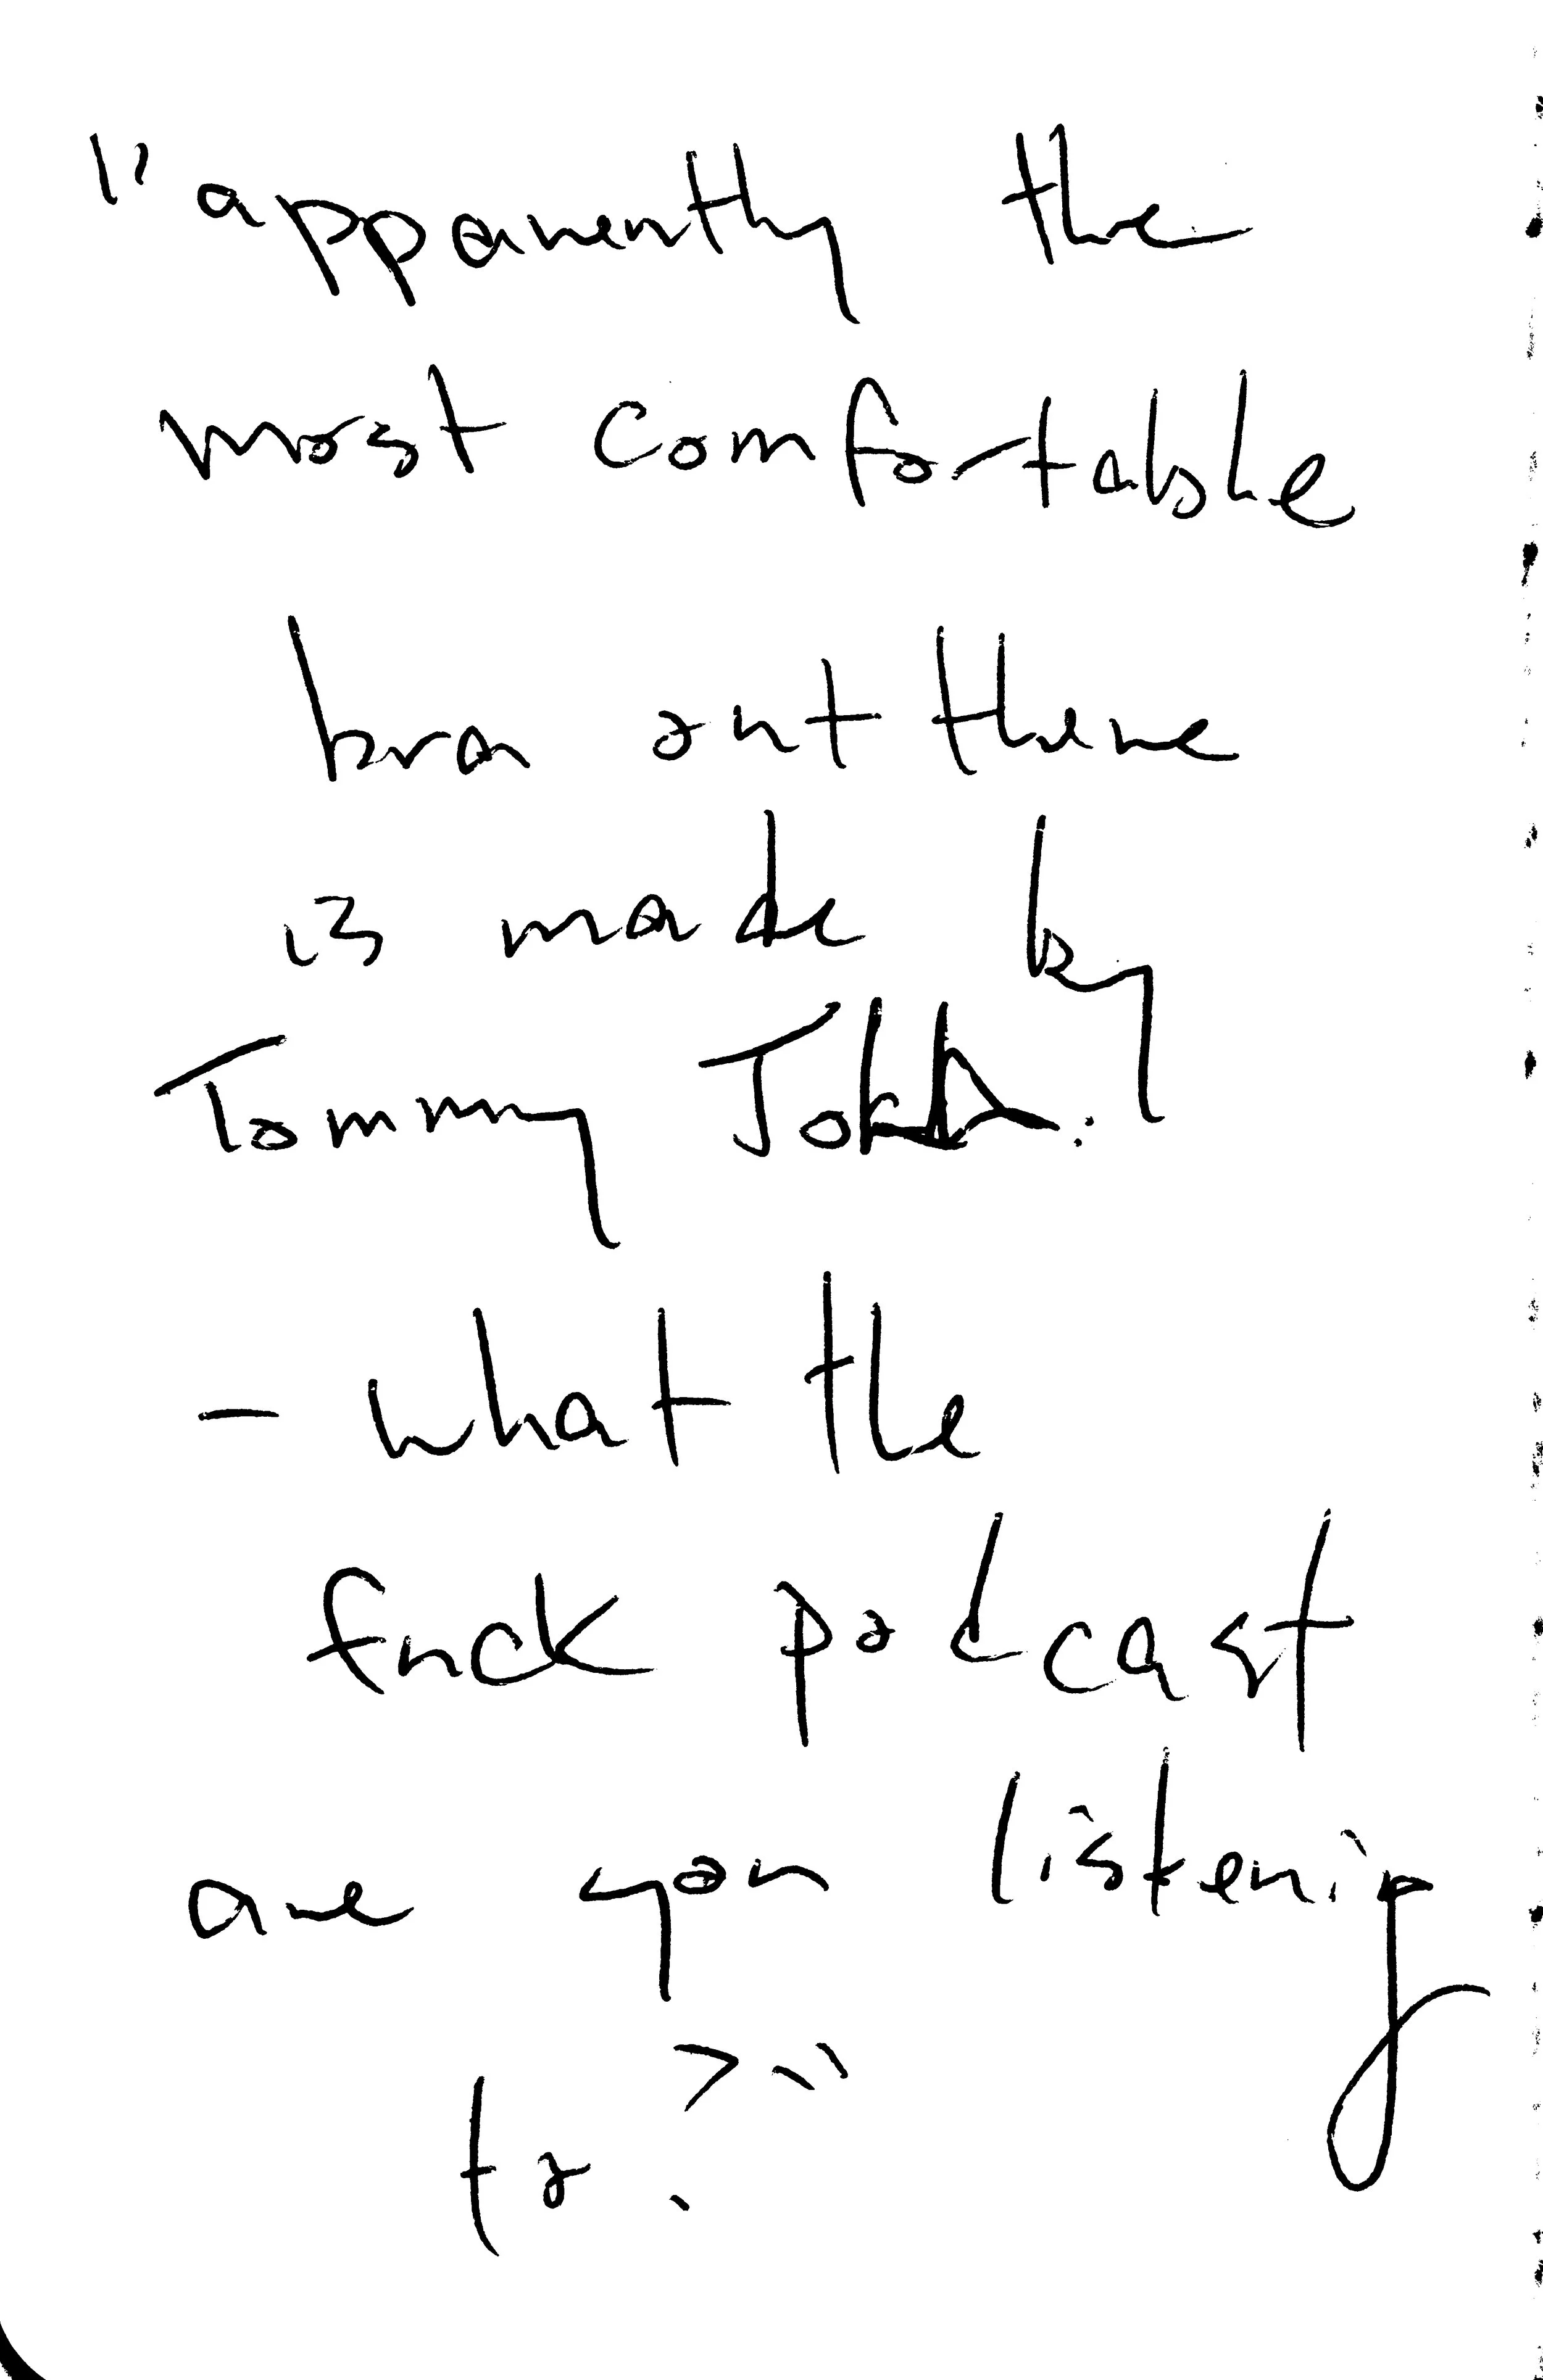 "apparently the
most comfortable
bra out there
is made by
Tommy John.
- what the
fuck podcast
are you listening
to?"